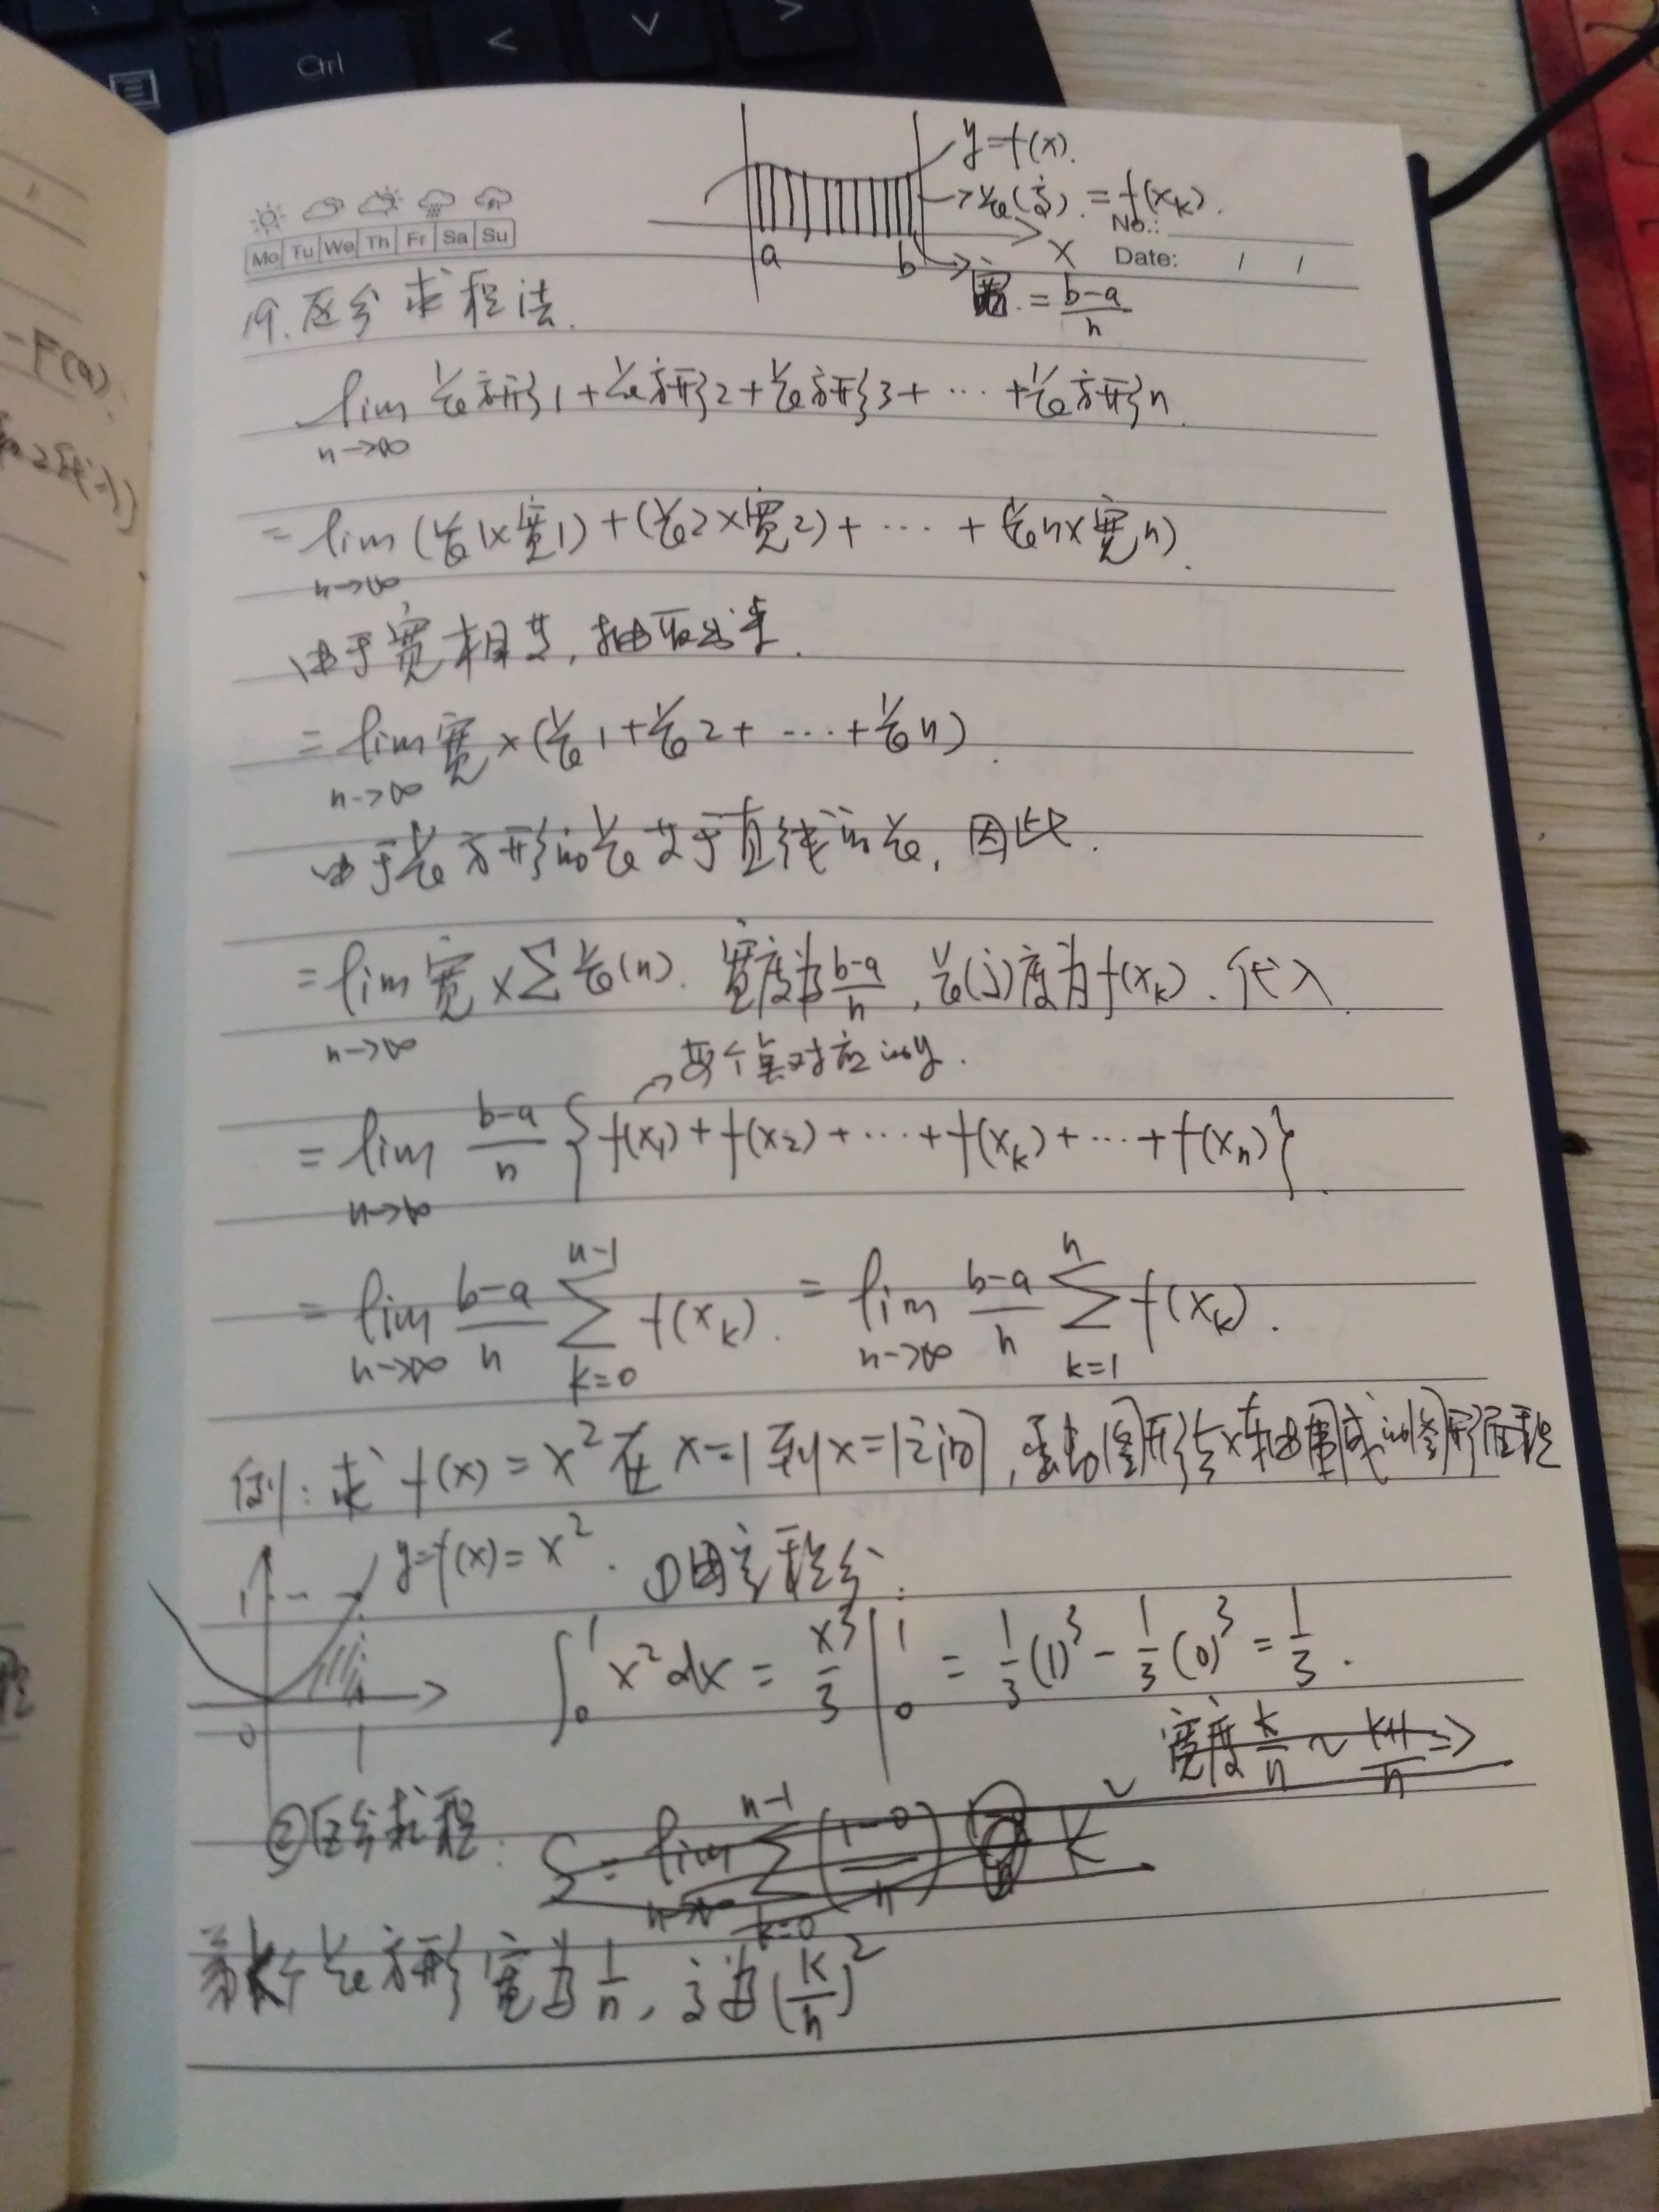 Ctrl
<
∨
>
y=f(x).
→长(高).=f(xₖ).
Mo Tu We Th Fr Sa Su
No.:
a b X
Date: / /
→宽.=(b-a)/n
19.区分求积法.
lim n→∞ 长方形1+长方形2+长方形3+…+长方形n.
=lim n→∞ (长1×宽1)+(长2×宽2)+…+(长n×宽n).
由于宽相等,抽取出来.
=lim n→∞ 宽×(长1+长2+…+长n).
由于长方形的长等于直线的长,因此.
=lim n→∞ 宽×∑长(n). 宽度为(b-a)/n,长(高)度为f(xₖ).代入.
→每个点对应的y.
=lim n→∞ (b-a)/n {f(x₁)+f(x₂)+…+f(xₖ)+…+f(xₙ)}.
=lim n→∞ (b-a)/n ∑ k=0 n-1 f(xₖ).=lim n→∞ (b-a)/n ∑ k=1 n f(xₖ).
例:求f(x)=x²在x=1到x=1之间,图形与x轴围成的图形面积
y=f(x)=x². ①用定积分:
1
∫₀¹x²dx=x³/3|₀¹=1/3(1)³-1/3(0)³=1/3.
0 1
宽度k/n~(k+1)/n⇒
②区分求积: S=lim n→∞ ∑ k=0 n-1 ((1-0)/n) K
第k个长方形宽为1/n,高为(k/n)²
-F(a).